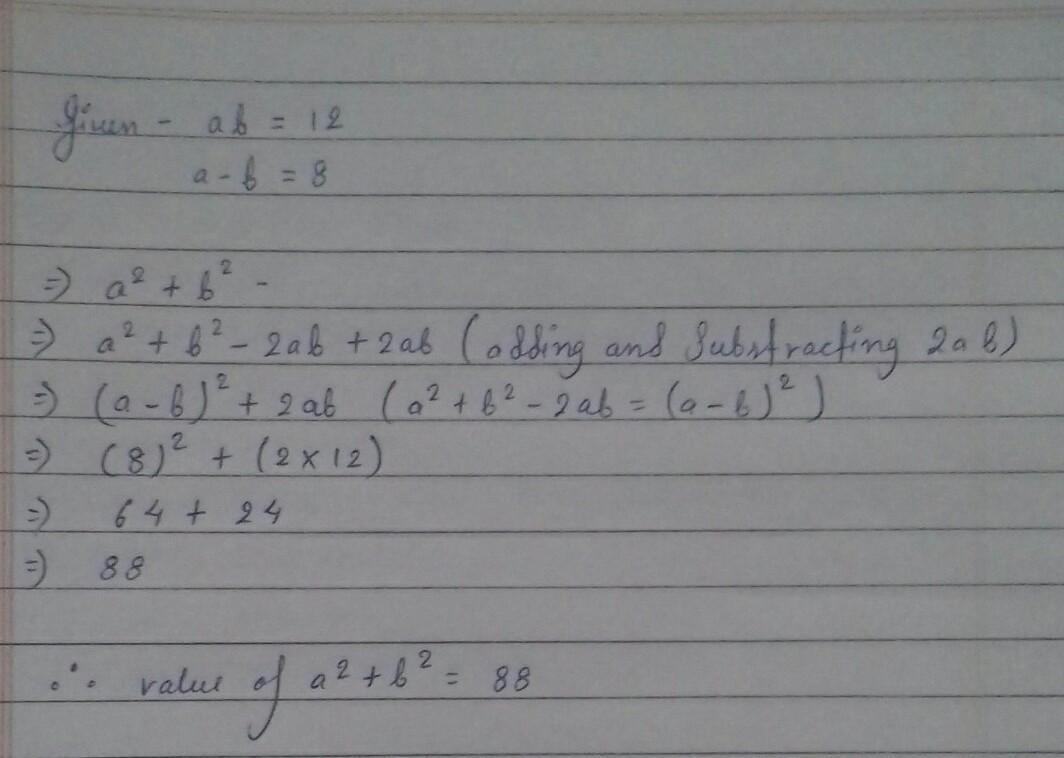 Given - ab = 12
a - b = 8
⇒ a² + b² -
⇒ a² + b² - 2ab + 2ab (adding and Substracting 2ab)
⇒ (a - b)² + 2ab (a² + b² - 2ab = (a - b)²)
⇒ (8)² + (2 × 12)
⇒ 64 + 24
⇒ 88
∴ value of a² + b² = 88